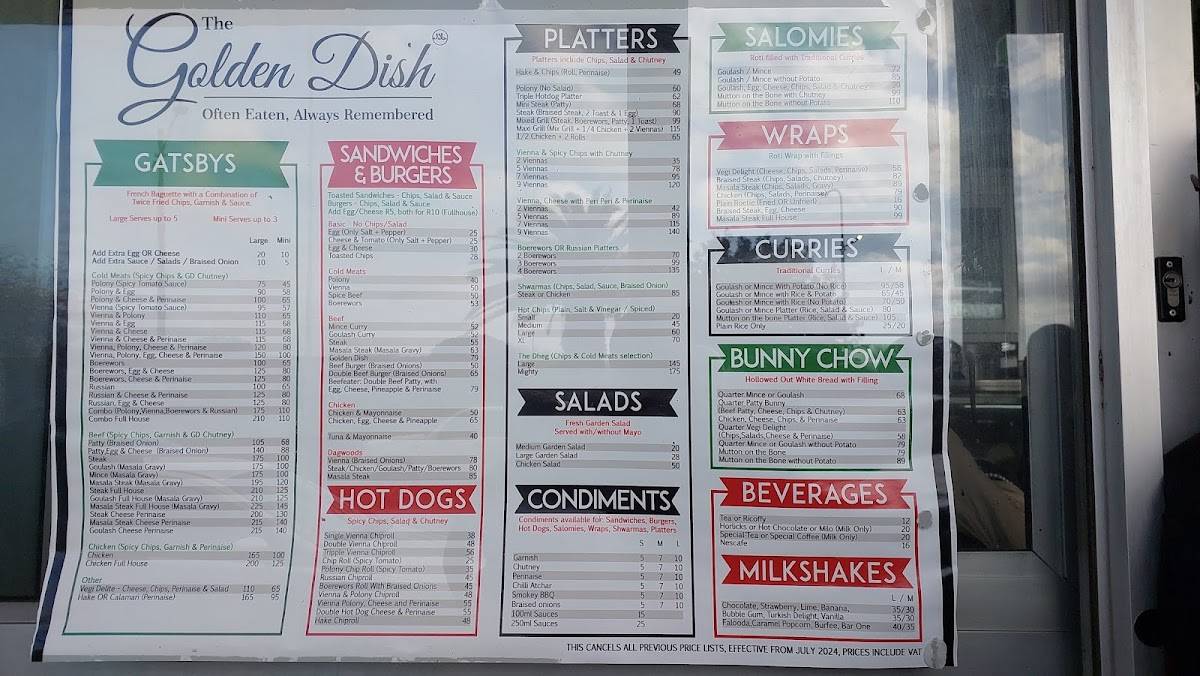 The
Golden Dish
Often Eaten, Always Remembered
GATSBYS
French Baguette with a Combination of
Twice Fried Chips, Garnish & Sauce.
Large Serves up to 5 Mini Serves up to 3
Large Mini
Add Extra Egg OR Cheese 20 10
Add Extra Sauce / Salads / Braised Onion 10 5
Cold Meats (Spicy Chips & GD Chutney)
Polony (Spicy Tomato Sauce) 75 45
Polony & Egg 90 58
Polony & Cheese & Perinaise 100 65
Vienna (Spicy Tomato Sauce) 95 57
Vienna & Polony 110 65
Vienna & Egg 115 68
Vienna & Cheese 115 68
Vienna & Cheese & Perinaise 115 68
Vienna, Polony, Cheese & Perinaise 120 80
Vienna, Polony, Egg, Cheese & Perinaise 150 100
Boerewors 100 65
Boerewors, Egg & Cheese 125 80
Boerewors, Cheese & Perinaise 125 80
Russian 100 65
Russian & Cheese & Perinaise 125 80
Russian, Egg & Cheese 125 80
Combo (Polony,Vienna,Boerewors & Russian) 175 110
Combo Full House 210 110
Beef (Spicy Chips, Garnish & GD Chutney)
Patty (Braised Onion) 105 68
Patty,Egg & Cheese (Braised Onion) 140 88
Steak 175 100
Goulash (Masala Gravy) 175 100
Mince (Masala Gravy) 175 100
Masala Steak (Masala Gravy) 195 120
Steak Full House 210 125
Goulash Full House (Masala Gravy) 210 125
Masala Steak Full House (Masala Gravy) 225 145
Steak Cheese Perinaise 200 130
Masala Steak Cheese Perinaise 215 140
Goulash Cheese Perinaise 215 140
Chicken (Spicy Chips, Garnish & Perinaise)
Chicken 165 100
Chicken Full House 200 125
Other
Vegi Delite - Cheese, Chips, Perinaise & Salad 110 65
Hake OR Calamari (Perinaise) 165 95
SANDWICHES
& BURGERS
Toasted Sandwiches - Chips, Salad & Sauce
Burgers - Chips, Salad & Sauce
Add Egg/Cheese R5, both for R10 (Fullhouse)
Basic - No Chips/Salad
Egg (Only Salt + Pepper) 25
Cheese & Tomato (Only Salt + Pepper) 25
Egg & Cheese 30
Toasted Chips 28
Cold Meats
Polony 40
Vienna 50
Spice Beef 50
Boerewors 53
Beef
Mince Curry 52
Goulash Curry 52
Steak 55
Masala Steak (Masala Gravy) 63
Golden Dish 79
Beef Burger (Braised Onions) 50
Double Beef Burger (Braised Onions) 65
Beefeater: Double Beef Patty, with
Egg, Cheese, Pineapple & Perinaise 79
Chicken
Chicken & Mayonnaise 50
Chicken, Egg, Cheese & Pineapple 65
Tuna & Mayonnaise 40
Dagwoods
Vienna (Braised Onions) 78
Steak/Chicken/Goulash/Patty/Boerewors 80
Masala Steak 85
HOT DOGS
Spicy Chips, Salad & Chutney
Single Vienna Chiproll 38
Double Vienna Chiproll 48
Triple Vienna Chiproll 56
Chip Roll (Spicy Tomato) 25
Polony Chip Roll (Spicy Tomato) 35
Russian Chiproll 45
Boerewors Roll With Braised Onions 45
Vienna & Polony Chiproll 48
Vienna Polony, Cheese and Perinaise 55
Double Hot Dog Cheese & Perinaise 55
Hake Chiproll 48
PLATTERS
Platters include Chips, Salad & Chutney
Hake & Chips (Roll, Perinaise) 49
Polony (No Salad) 60
Triple Hotdog Platter 62
Mini Steak (Patty) 68
Steak (Braised Steak, 2 Toast & 1 Egg) 90
Mixed Grill (Steak, Boerewors, Patty, 1 Toast) 99
Maxi Grill (Mix Grill + 1/4 Chicken + 2 Viennas) 115
1/2 Chicken + 2 Rolls 65
Vienna & Spicy Chips with Chutney
2 Viennas 35
5 Viennas 78
7 Viennas 95
9 Viennas 120
Vienna, Cheese with Peri Peri & Perinaise
2 Viennas 42
5 Viennas 89
7 Viennas 115
9 Viennas 140
Boerewors OR Russian Platters
2 Boerewors 70
3 Boerewors 99
4 Boerewors 135
Shwarmas (Chips, Salad, Sauce, Braised Onion)
Steak or Chicken 85
Hot Chips (Plain, Salt & Vinegar / Spiced)
Small 20
Medium 45
Large 60
XL 70
The Dheg (Chips & Cold Meats selection)
Large 145
Mighty 175
SALADS
Fresh Garden Salad
Served with/without Mayo
Medium Garden Salad 20
Large Garden Salad 28
Chicken Salad 50
CONDIMENTS
Condiments available for: Sandwiches, Burgers,
Hot Dogs, Salomies, Wraps, Shwarmas, Platters
S M L
Garnish 5 7 10
Chutney 5 7 10
Perinaise 5 7 10
Chilli Atchar 5 7 10
Smokey BBQ 5 7 10
Braised onions 5 7 10
100ml Sauces 15
250ml Sauces 25
SALOMIES
Roti filled with Traditional Curries
Goulash / Mince 72
Goulash / Mince without Potato 85
Goulash, Egg, Cheese, Chips, Salad & Chutney
Mutton on the Bone with Chutney 99
Mutton on the Bone without Potato 110
WRAPS
Roti Wrap with Fillings
Vegi Delight (Cheese, Chips, Salads, Perinaise) 58
Braised Steak (Chips, Salads, Chutney) 82
Masala Steak (Chips, Salads, Gravy) 89
Chicken (Chips, Salads, Perinaise) 79
Plain Rootie (Fried OR Unfried) 16
Braised Steak, Egg, Cheese 90
Masala Steak Full House 99
CURRIES
Traditional Curries L / M
Goulash or Mince With Potato (No Rice) 95/58
Goulash or Mince with Rice & Potato 65/45
Goulash or Mince with Rice (No Potato) 70/50
Goulash or Mince Platter (Rice, Salad & Sauce) 80
Mutton on the bone Platter (Rice, Salad & Sauce) 105
Plain Rice Only 25/20
BUNNY CHOW
Hollowed Out White Bread with Filling
Quarter Mince or Goulash 68
Quarter Patty Bunny
(Beef Patty, Cheese, Chips & Chutney) 63
Chicken, Cheese, Chips, & Perinaise 63
Quarter Vegi Delight
(Chips,Salads,Cheese & Perinaise) 58
Quarter Mince or Goulash without Potato 79
Mutton on the Bone 79
Mutton on the Bone without Potato 89
BEVERAGES
Tea or Ricoffy 12
Horlicks or Hot Chocolate or Milo (Milk Only) 20
Special Tea or Special Coffee (Milk Only) 20
Nescafe 16
MILKSHAKES
L / M
Chocolate, Strawberry, Lime, Banana, 35/30
Bubble Gum, Turkish Delight, Vanilla 35/30
Falooda,Caramel Popcorn, Burfee, Bar One 40/35
THIS CANCELS ALL PREVIOUS PRICE LISTS, EFFECTIVE FROM JULY 2024, PRICES INCLUDE VAT